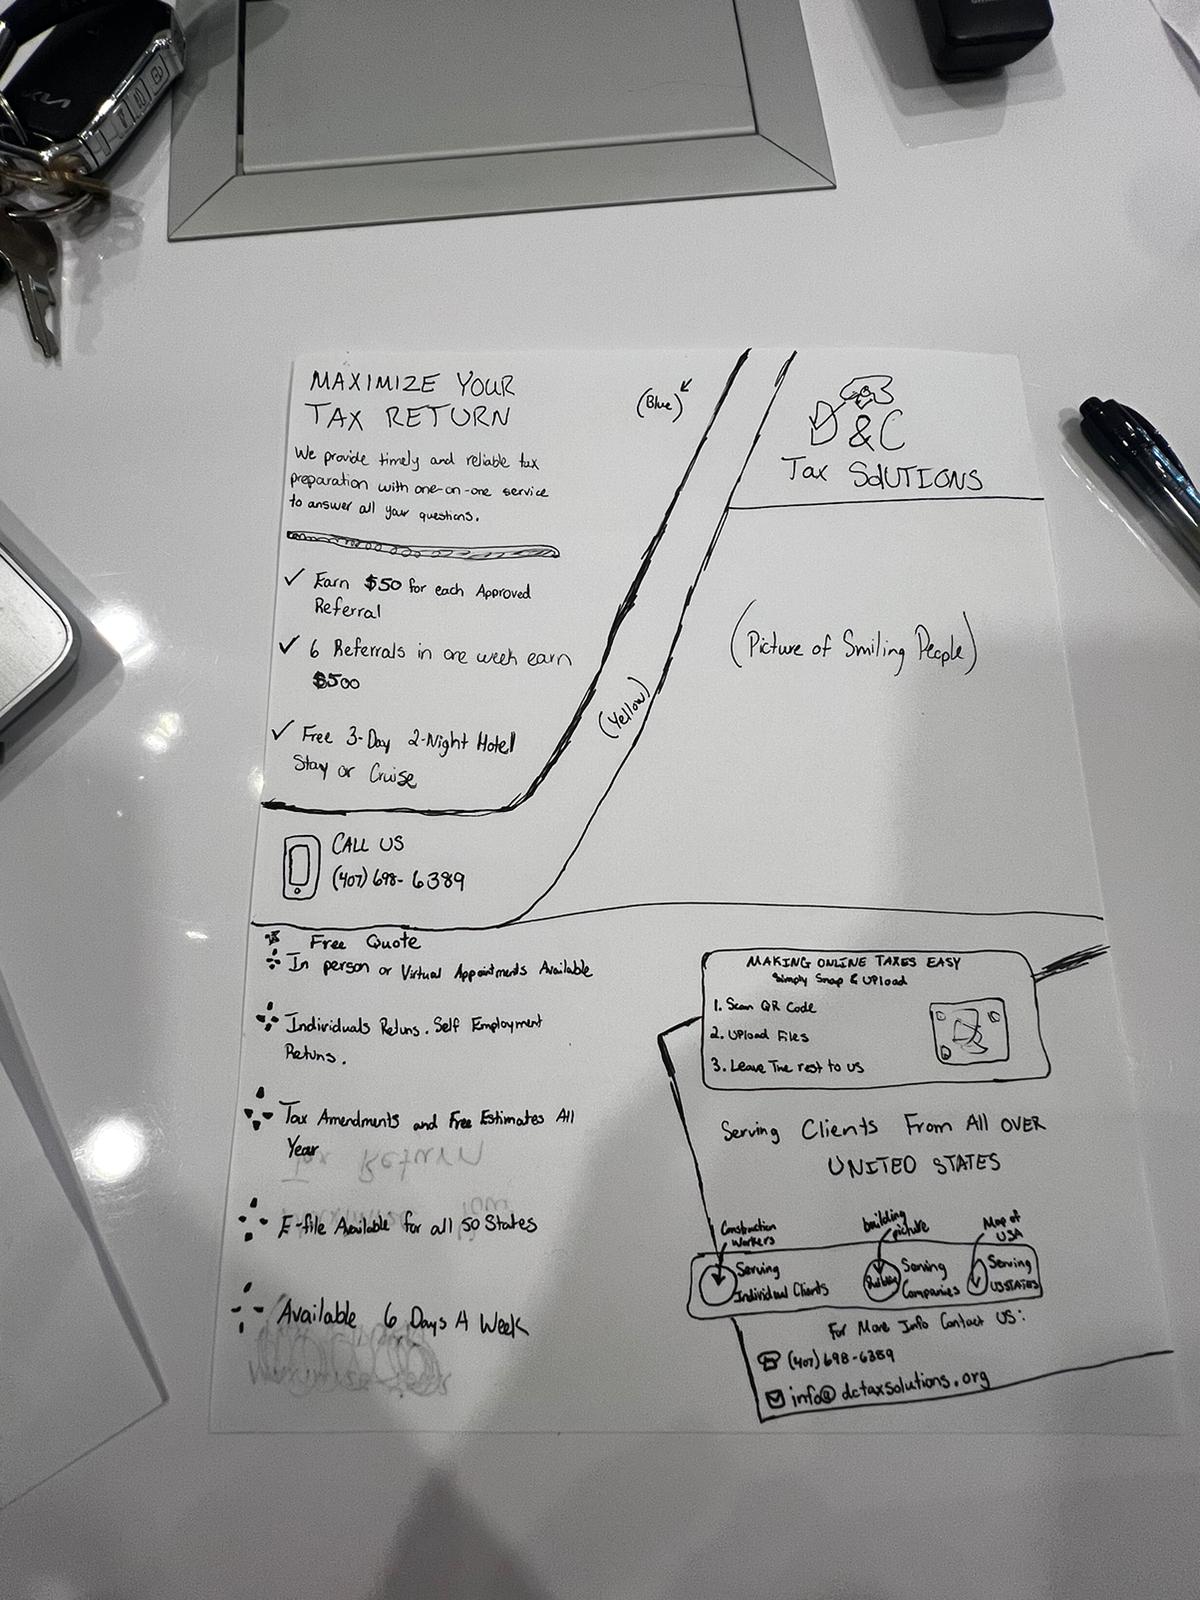 MAXIMIZE YOUR
TAX RETURN
We provide timely and reliable tax
preparation with one-on-one service
to answer all your questions.
✓ Earn $50 for each Approved
Referral
✓ 6 Referrals in one week earn
$500
✓ Free 3-Day 2-Night Hotel
Stay or Cruise
CALL US
(407) 698-6389
(Blue)
(Yellow)
D&C
Tax SOLUTIONS
(Picture of Smiling People)
Free Quote
In person or Virtual Appointments Available
Individuals Retuns. Self Employment
Retuns.
Tax Amendments and Free Estimates All
Year
E-file Available for all 50 States
Available 6 Days A Week
MAKING ONLINE TAXES EASY
Simply Snap & UPload
1. Scan QR Code
2. UPload Files
3. Leave The rest to us
Serving Clients From All OVER
UNITED STATES
Construction
workers
building
picture
Map of
USA
Serving
Individual Clients
Serving
Companies
Serving
USSTATES
For More Info Contact US:
(407) 698-6389
info@dctaxsolutions.org